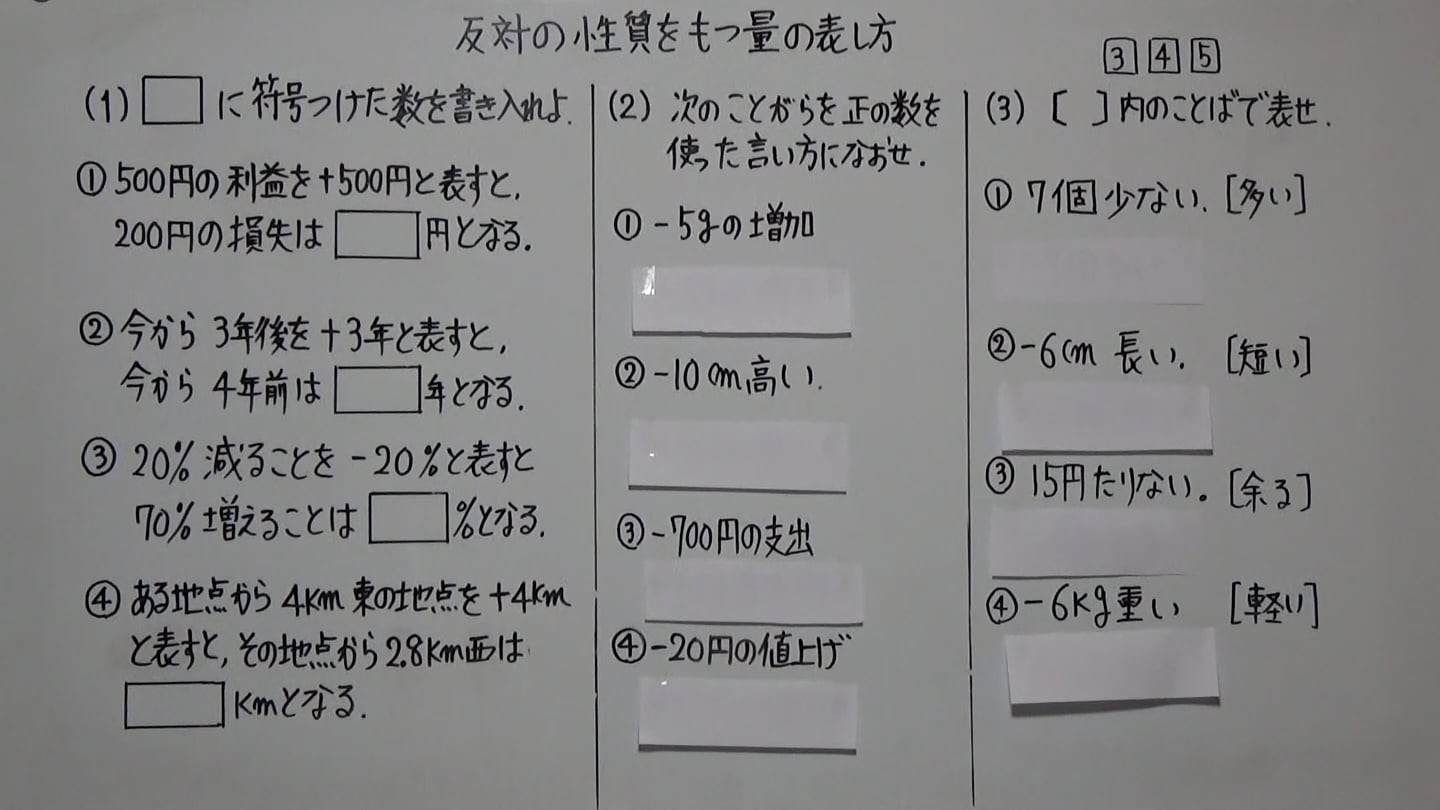 反対の性質をもつ量の表し方
3 4 5
(1) □に符号つけた数を書き入れよ.
① 500円の利益を+500円と表すと,
200円の損失は□円となる.
② 今から3年後を+3年と表すと,
今から4年前は□年となる.
③ 20%減ることを-20%と表すと
70%増えることは□%となる.
④ ある地点から4km東の地点を+4km
と表すと,その地点から2.8km西は
□kmとなる.
(2) 次のことがらを正の数を
使った言い方になおせ.
① -5gの増加
② -10cm高い.
③ -700円の支出
④ -20円の値上げ
(3) [ ]内のことばで表せ.
① 7個少ない. [多い]
② -6cm長い. [短い]
③ 15円たりない. [余る]
④ -6kg重い [軽い]